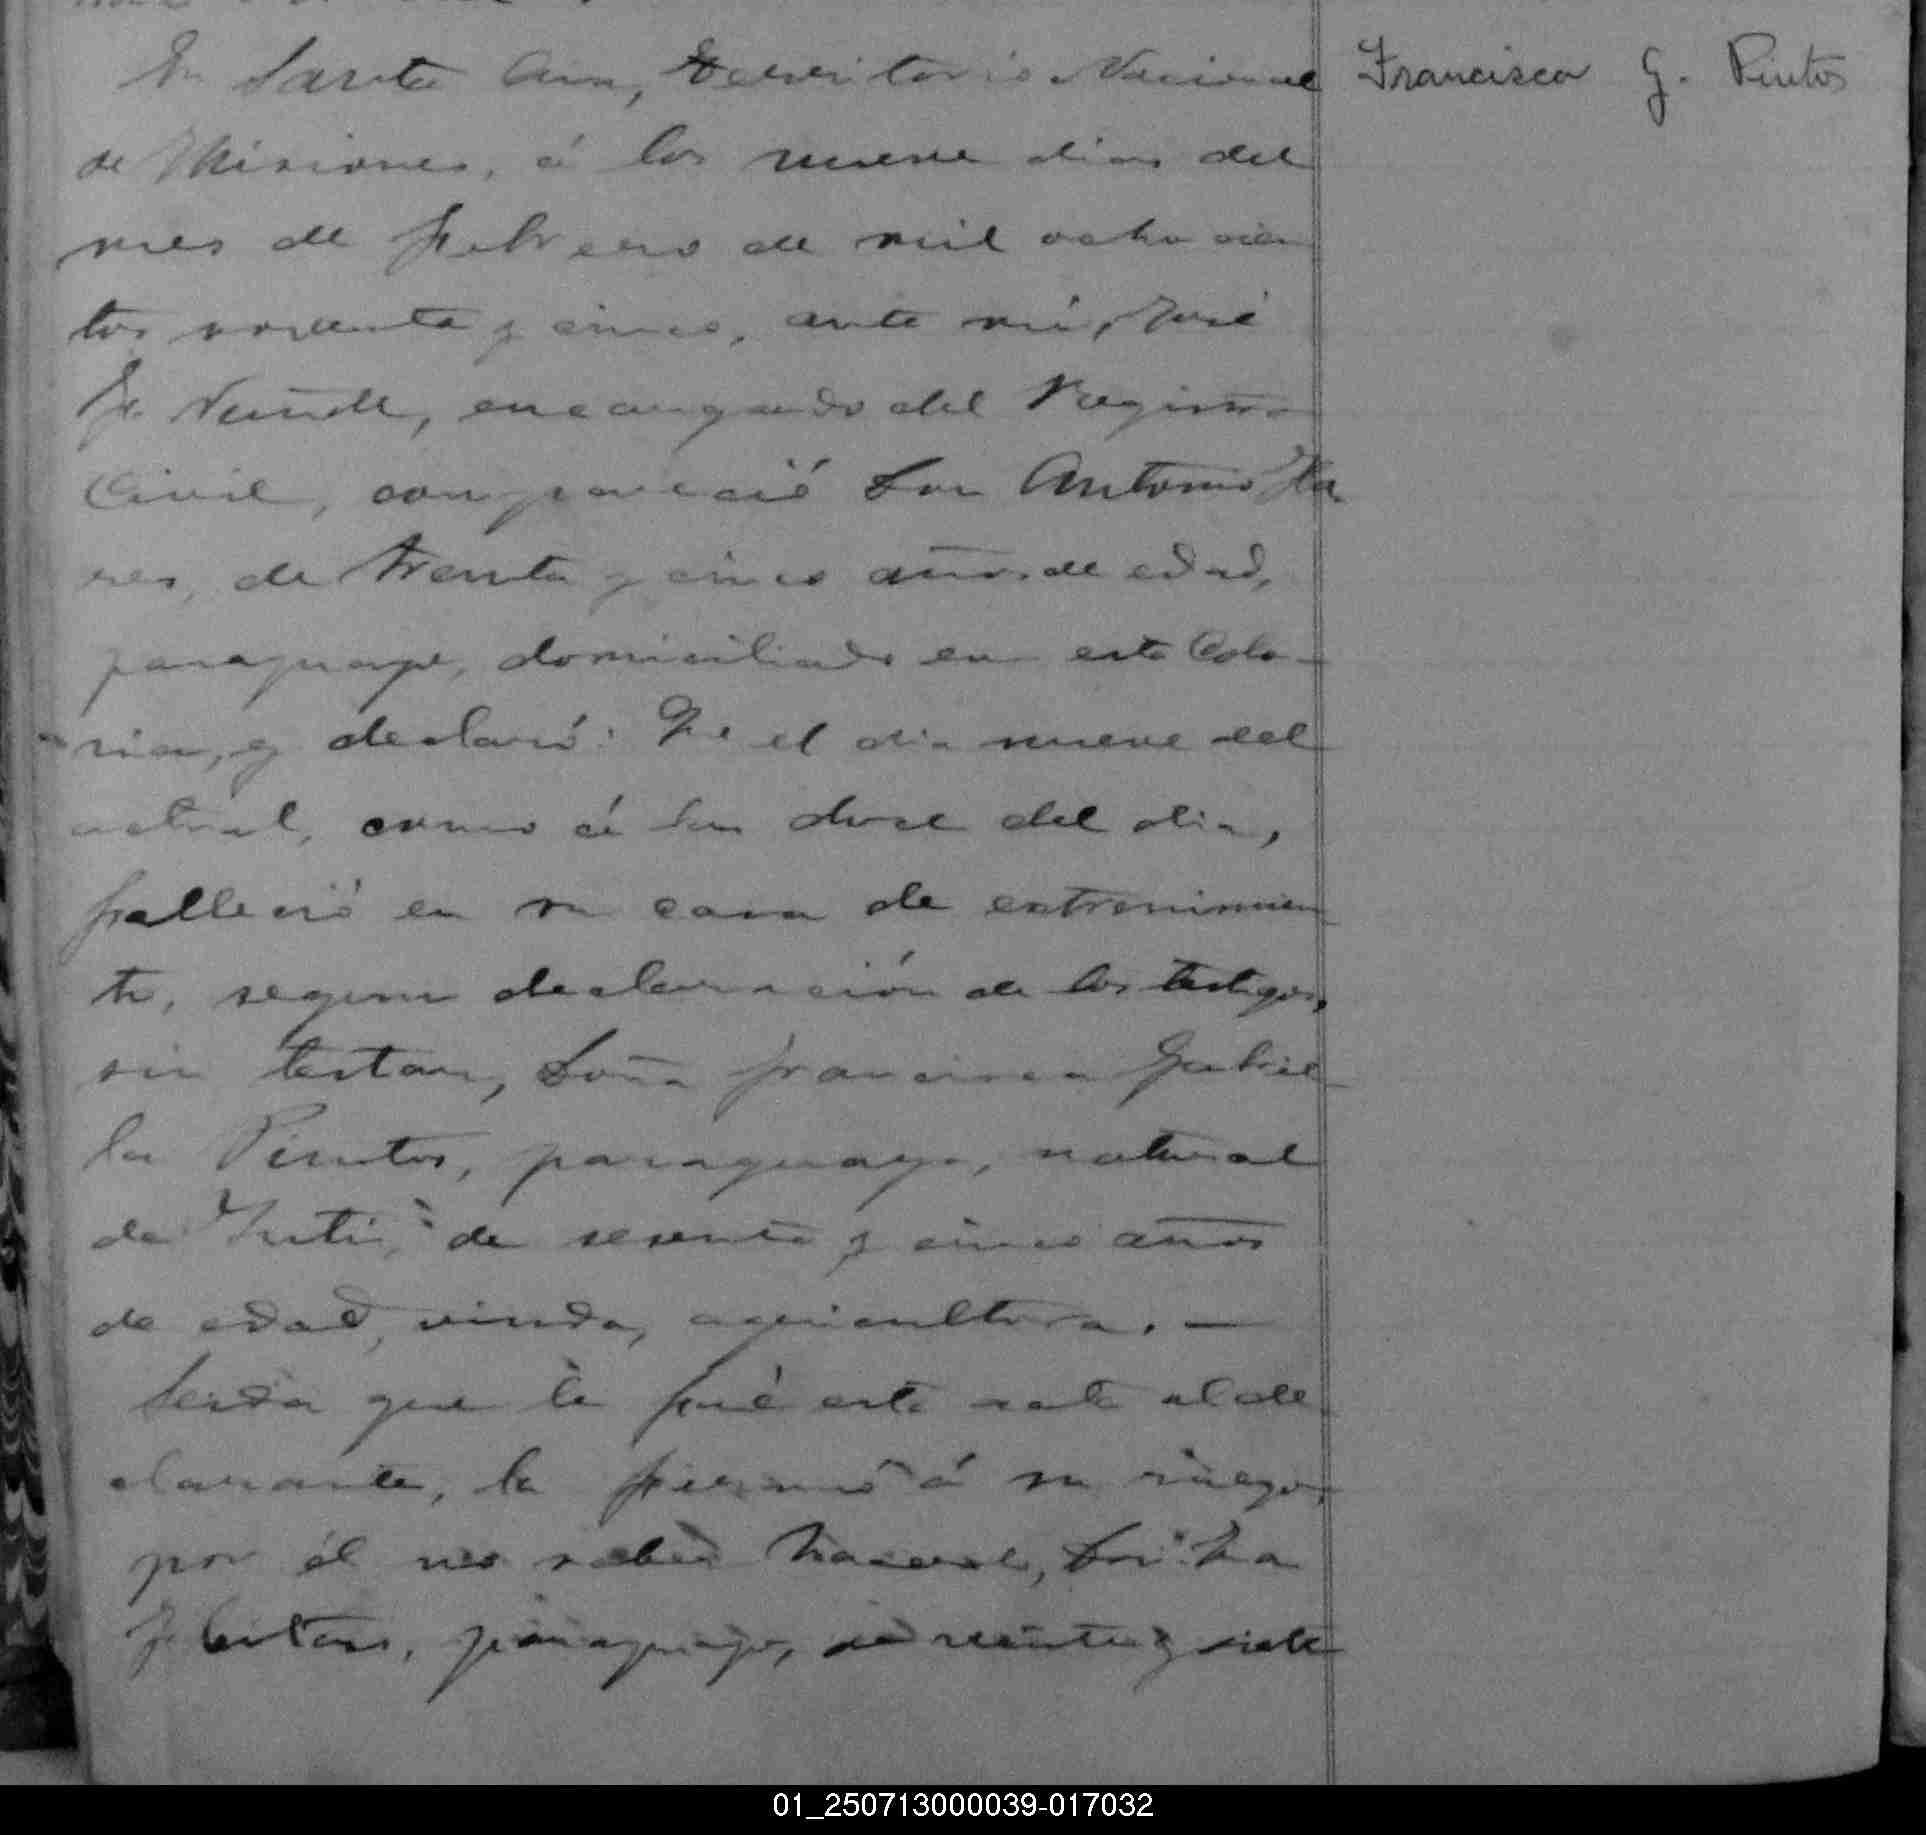 En Santa Ana, Territorio Nacional
Francisca G. Pintos
de Misiones, á los nueve dias del
mes de febrero de mil ochocien
tos noventa y cinco, ante mí, José
F. encargado del Registro
Civil, compareció Don Antonio
res, de treinta y cinco años de edad,
paraguayo, domiciliado en esta Colo-
nia, y declaró: Que el dia nueve del
actual, como á las doce del dia,
falleció en su casa de extrenimien
to, segun declaración de los testigos,
sin testar, Doña Francisca Gabrie
la Pintos, paraguaya, natural
de Yuti, de sesenta y cinco años
de edad, viuda, agricultora. —
Leida que le fué esta acta al de
clarante, la firmó á su ruego,
por él no saber hacerlo, Don
paraguayo, de veinte y siete
01_250713000039-017032